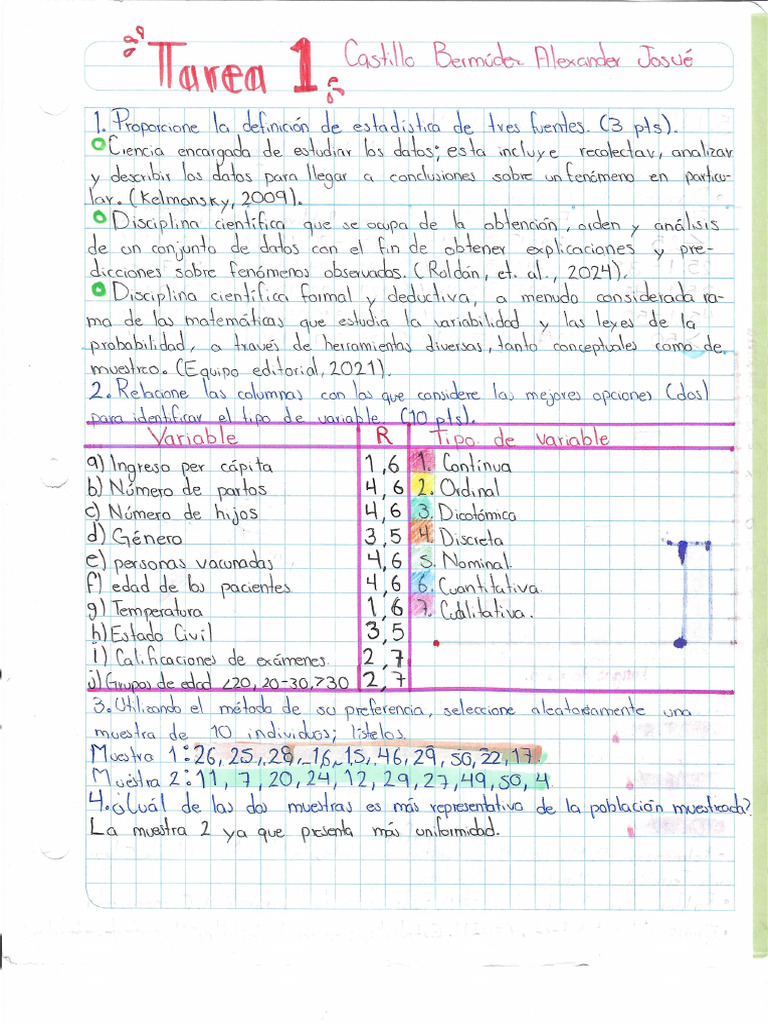 Tarea 1.
Castillo Bermúdez Alexander Josué
1. Proporcione la definición de estadística de tres fuentes. (3 pts).
Ciencia encargada de estudiar los datos; esta incluye recolectar, analizar
y describir los datos para llegar a conclusiones sobre un fenómeno en particu-
lar. (Kelmansky, 2009).
Disciplina científica que se ocupa de la obtención, orden y análisis
de un conjunto de datos con el fin de obtener explicaciones y pre-
dicciones sobre fenómenos observados. (Roldán, et. al., 2024).
Disciplina científica formal y deductiva, a menudo considerada ra-
ma de las matemáticas que estudia la variabilidad y las leyes de la
probabilidad, a través de herramientas diversas, tanto conceptuales como de
muestreo. (Equipo editorial, 2021).
2. Relacione las columnas con las que considere las mejores opciones (dos)
para identificar el tipo de variable. (10 pts).
Variable R Tipo de variable
a) Ingreso per cápita 1,6 1. Continua
b) Número de partos 4,6 2. Ordinal
c) Número de hijos 4,6 3. Dicotómica
d) Género 3,5 4. Discreta
e) personas vacunadas 4,6 5. Nominal.
f) edad de los pacientes 4,6 6. Cuantitativa.
g) Temperatura 1,6 7. Cualitativa.
h) Estado Civil 3,5
i) Calificaciones de exámenes. 2,7
j) Grupos de edad <20, 20-30, >30 2,7
3. Utilizando el método de su preferencia, seleccione aleatoriamente una
muestra de 10 individuos; listelos.
Muestra 1: 26, 25, 28, 16, 15, 46, 29, 50, 22, 17.
Muestra 2: 11, 7, 20, 24, 12, 29, 27, 49, 50, 4.
4. ¿Cuál de las dos muestras es más representativo de la población muestreada?
La muestra 2 ya que presenta más uniformidad.